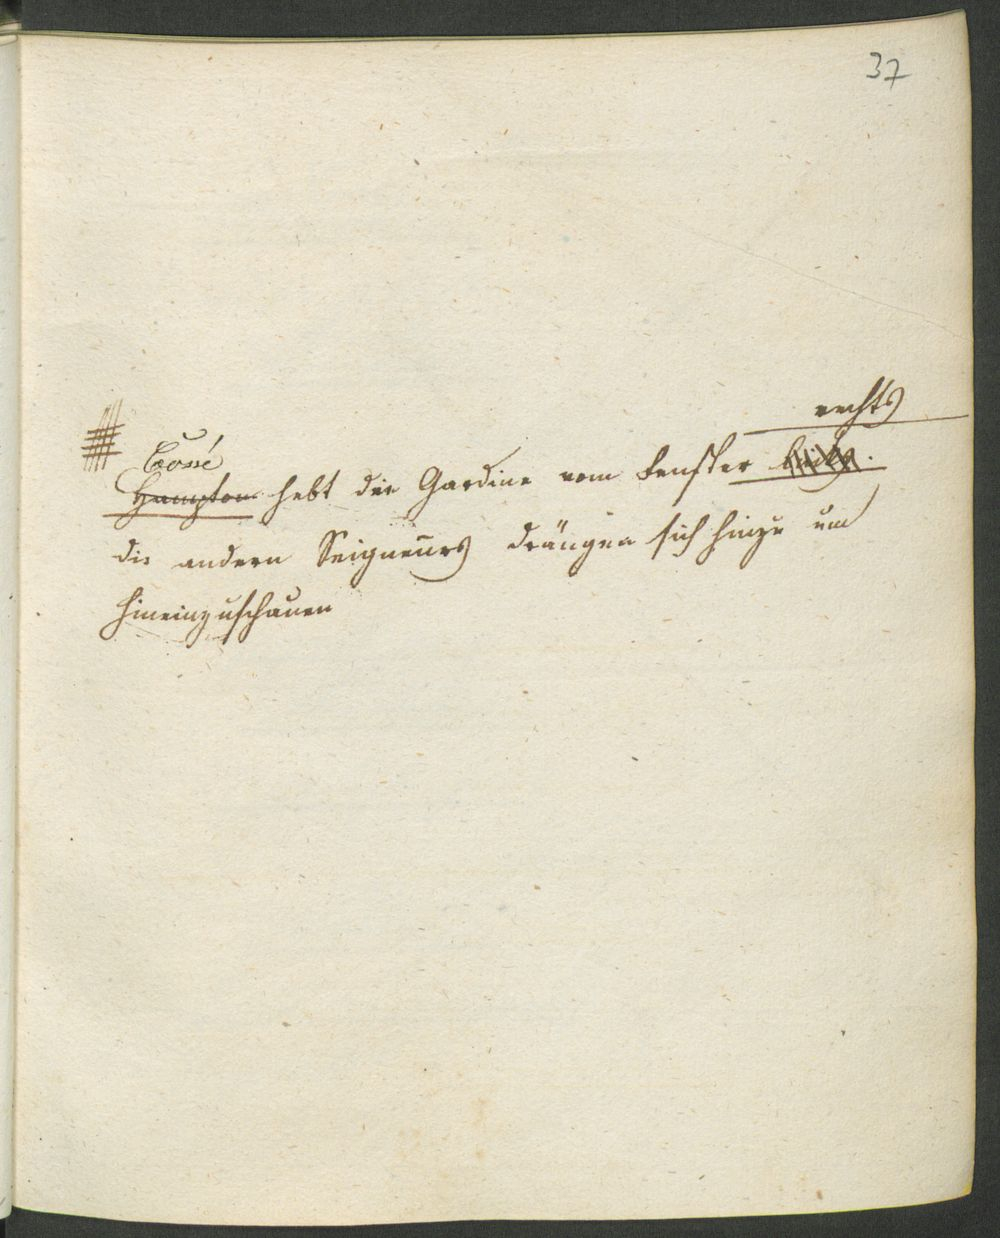 37
rechts
Cossé
Hampton hebt die Gardine vom Fenster links.
die andern Seigneurs drängen sich hinzu um
hineinzuschauen